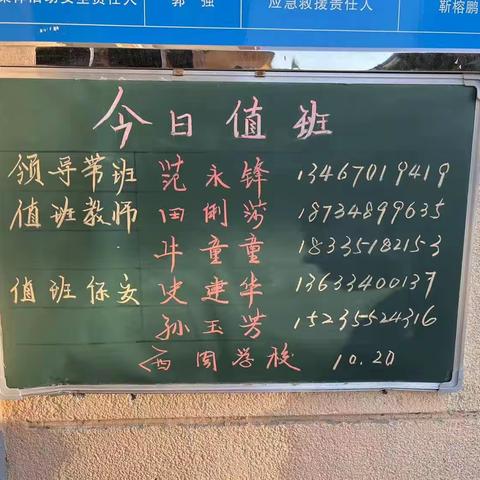 集体活动安全责任人 郭强 应急救援责任人 靳榕鹏
今日值班
领导带班 范永锋 13467019419
值班教师 田俐莎 18734899635
牛童童 18335182153
值班保安 史建华 13633400137
孙玉芳 15235524316
西周学校 10.20